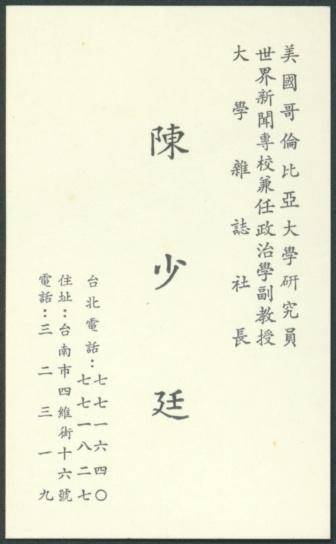 美國哥倫比亞大學研究員
世界新聞專校兼任政治學副教授
大學雜誌社長
陳少廷
台北電話：七七一六四〇
七七一八二七
住址：台南市四維街十六號
電話：三二三一九